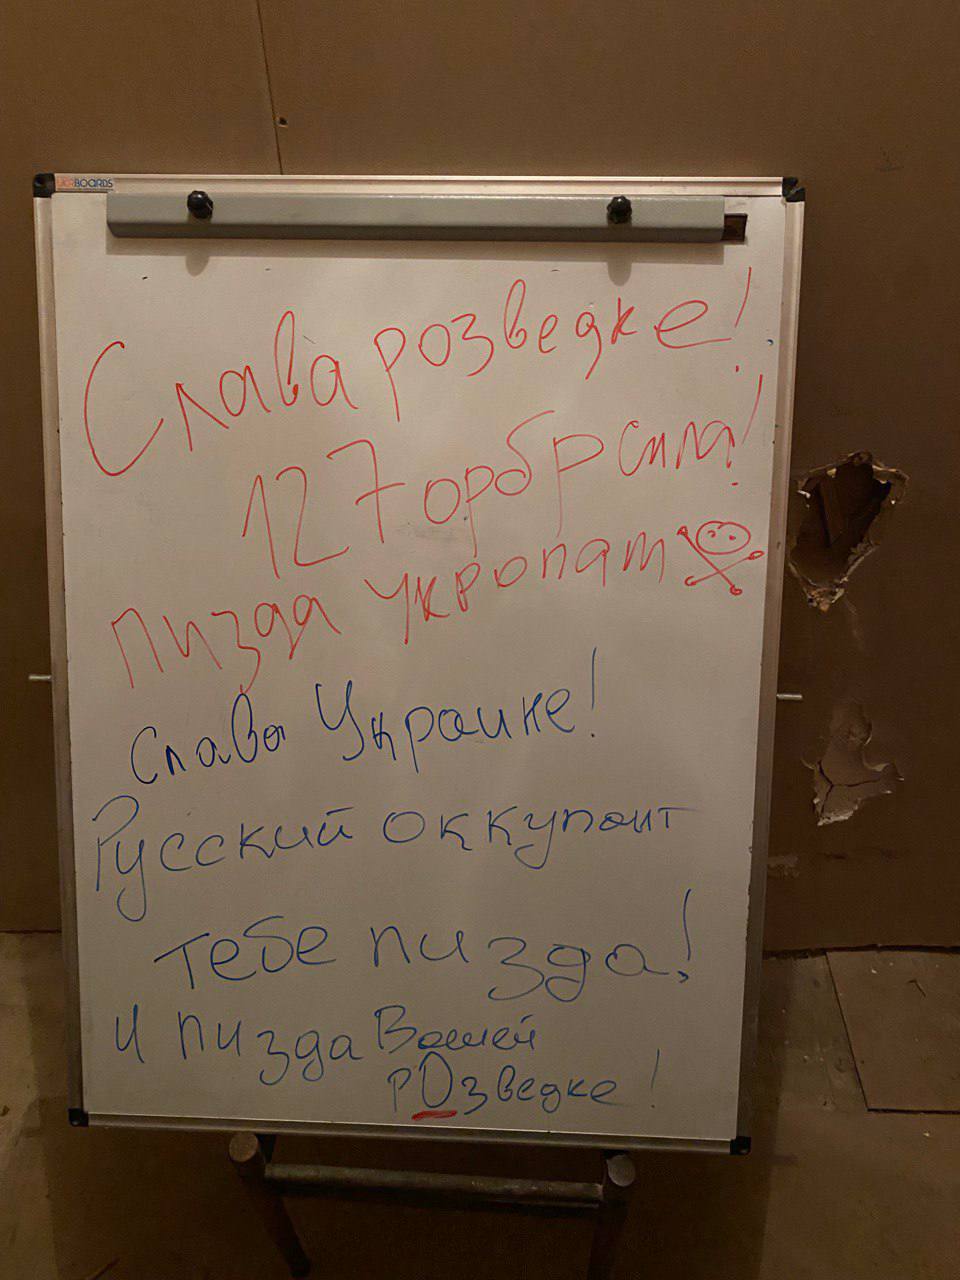 UKRBOARDS
Слава розведке!
127 орбр сила!
пизда укропам
Слава Украине!
Русский оккупант
тебе пизда!
И пизда Вашей
рОзведке!